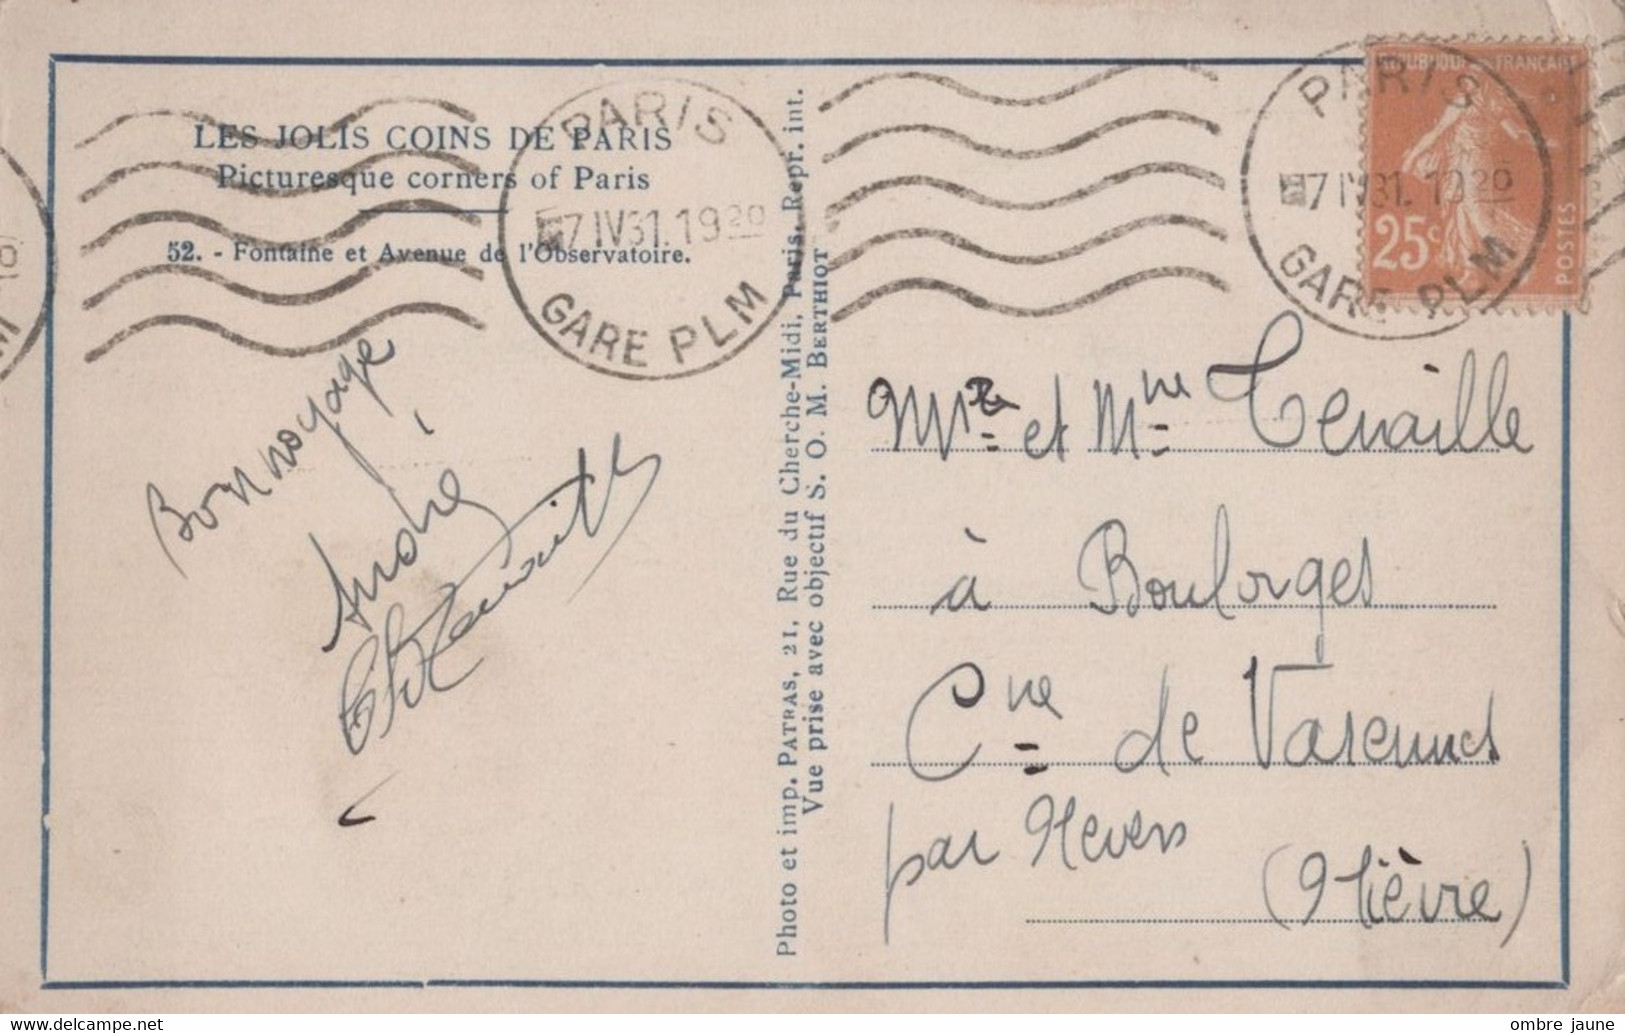 LES JOLIS COINS DE PARIS
Picturesque corners of Paris
52. - Fontaine et Avenue de l'Observatoire.
PARIS
7 IV 31. 19 20
GARE PLM
PARIS
7 IV 31. 19 20
GARE PLM
RÉPUBLIQUE FRANÇAISE
25c
POSTES
Bon voyage
André
Photo et imp. PATRAS, 21, Rue du Cherche-Midi, Paris. Repr. int.
Vue prise avec objectif S. O. M. BERTHIOT
Mr et Mme Tenaille
à Boulorges
Cne de Varennes
par Nevers
(Nièvre)
ombre jaune